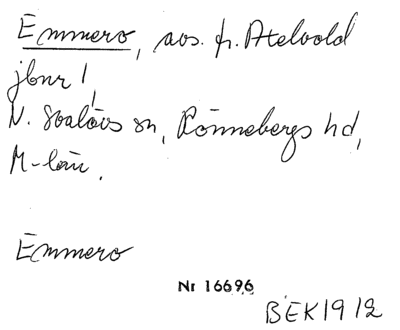 Emmero, avs. fr. Atelvold
jbnr 1,
N. Svalövs sn, Rönnebergs hd,
M-län.
Emmero
Nr 16696
BEK 1912